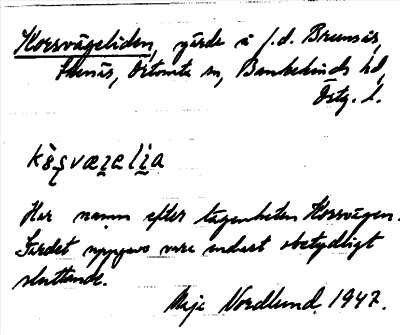 Korsvägeliden, gärde å f.d. Brunsås,
Stenås, Örtomta sn, Bankekinds hd,
Östg. l.
kȯṣvæʐelịa
Har namn efter lägenheten Korsvägen.
Gärdet uppges vara endast obetydligt
sluttande.
Maja Nordlund 1947.